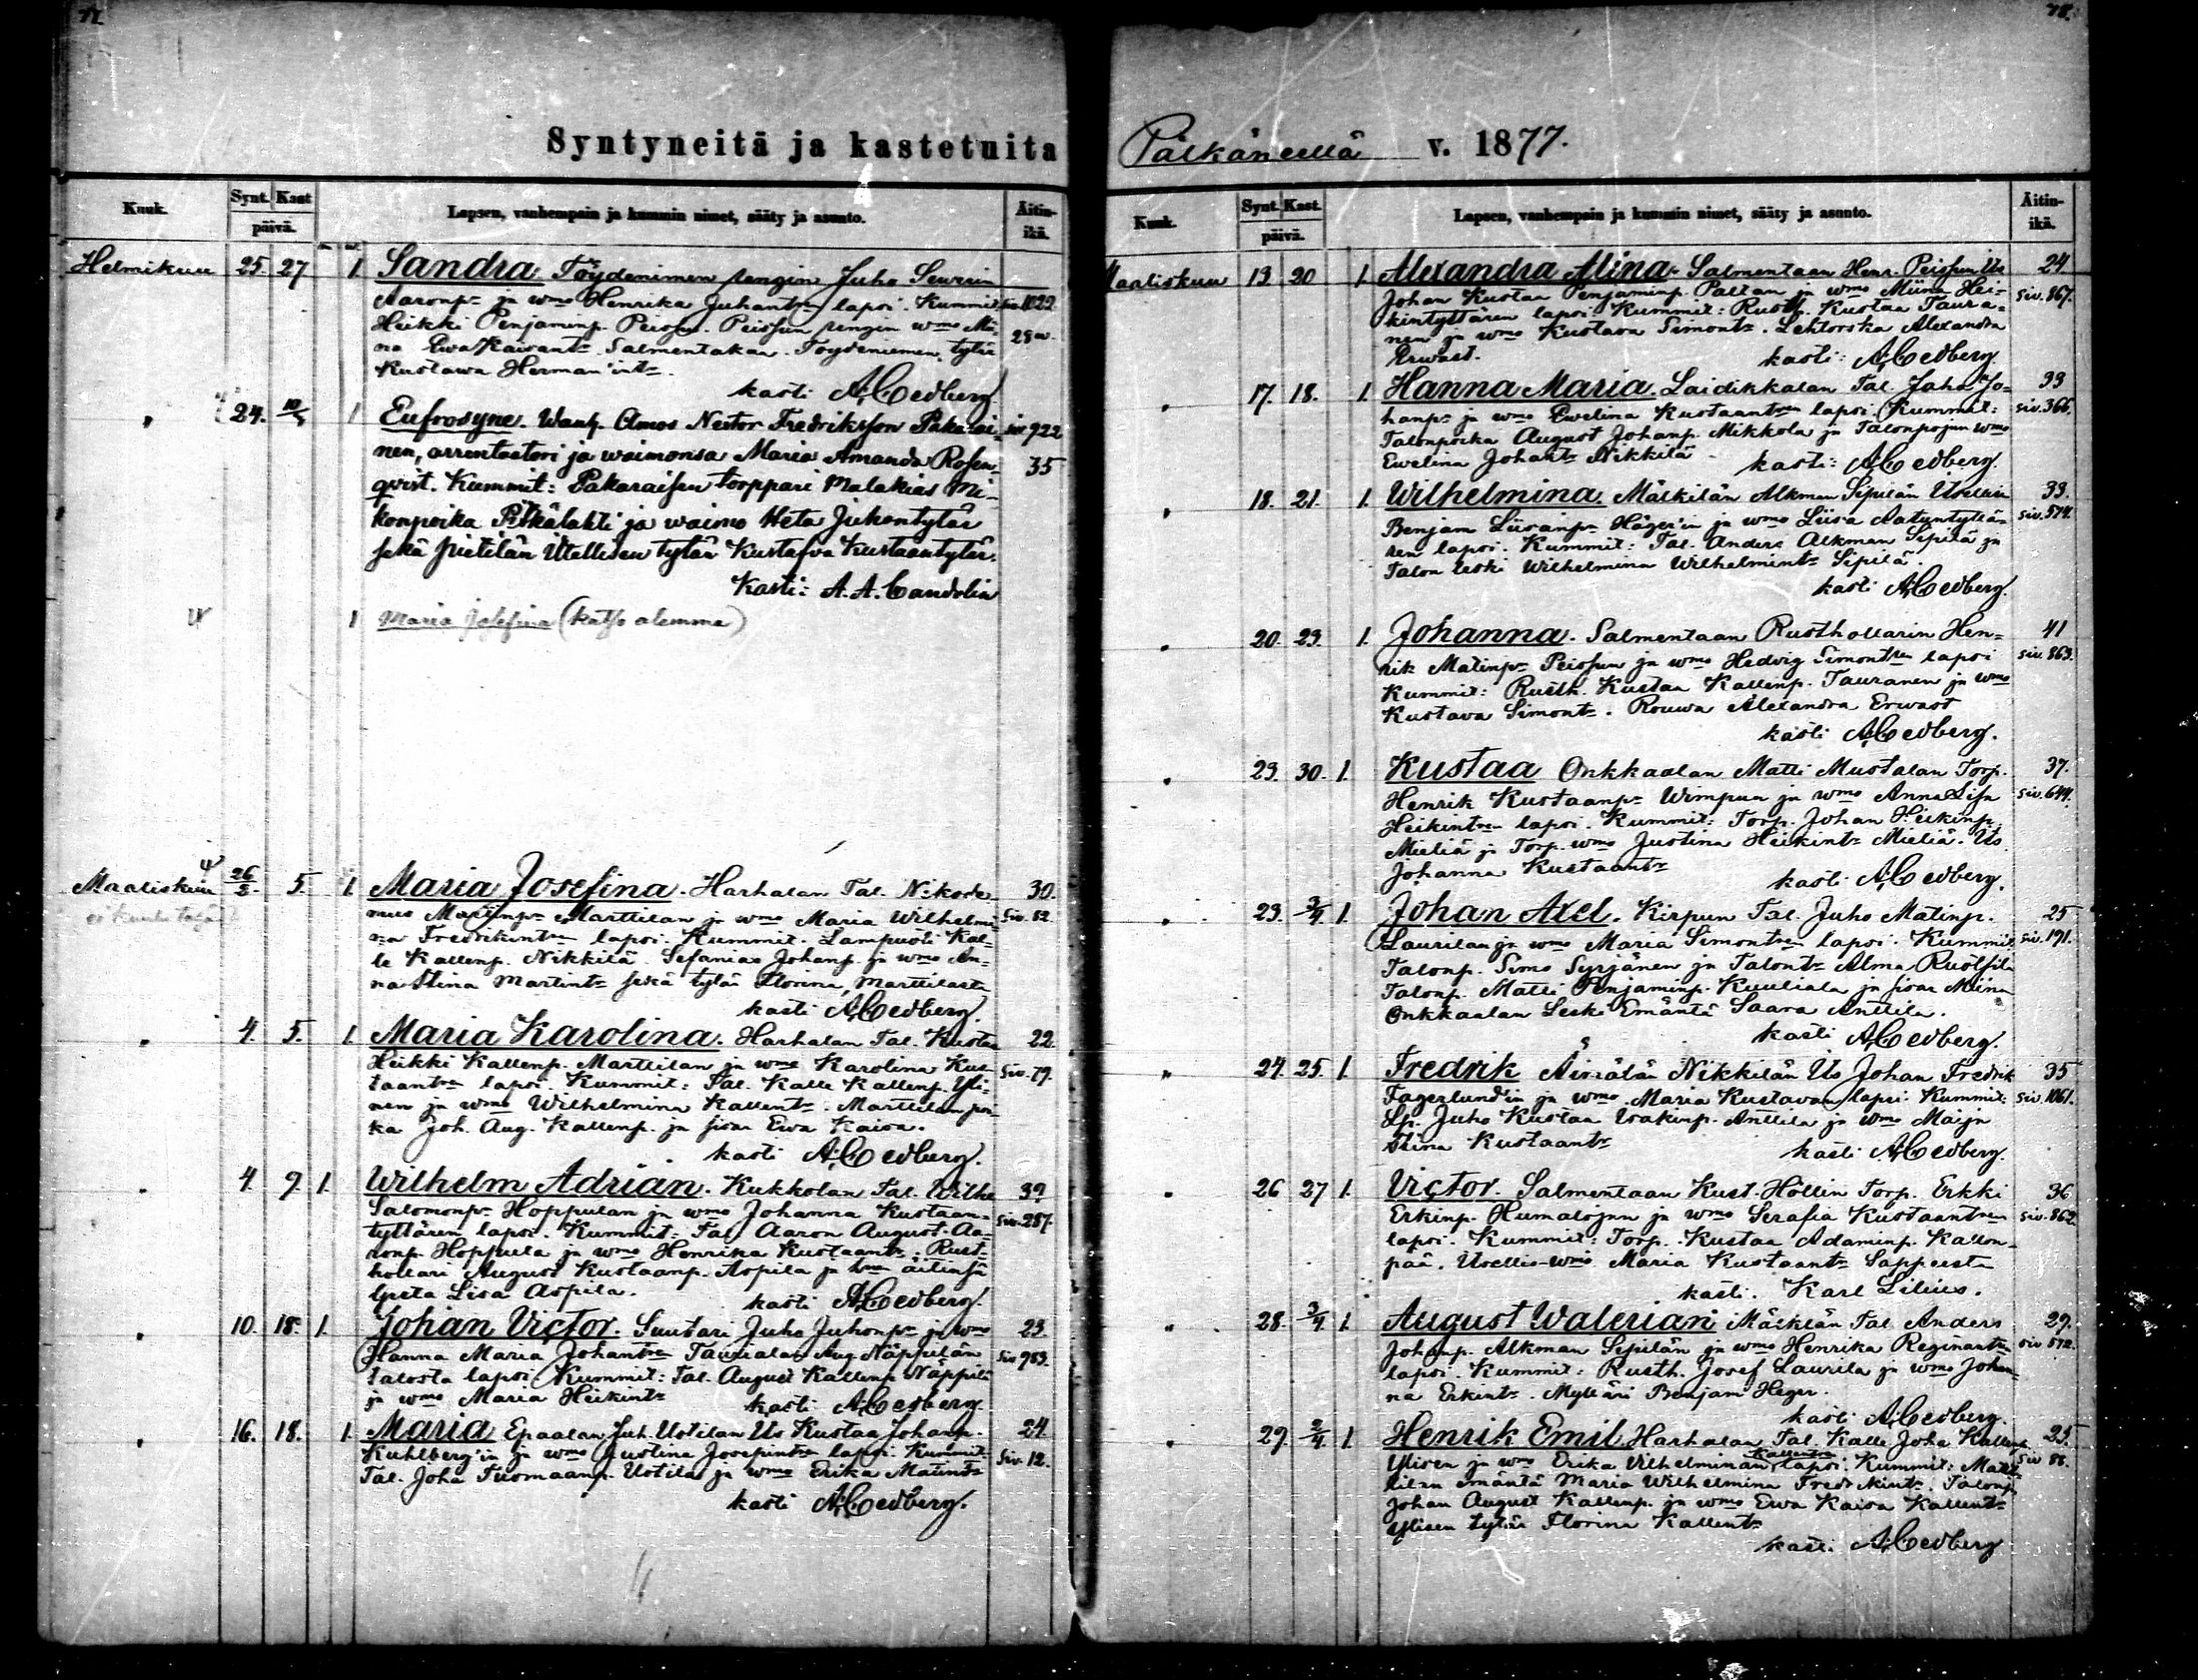 77.
Syntyneitä ja kastetuita
Kuuk. Synt. Kast. päivä. Lapsen, vanhempain ja kummin nimet, sääty ja asunto. Äitin-ikä.
Helmikuu 25 27 1 Sandra. Töydenimen rengin Juho Sewerin
Aaronp. ja wmo Henrika Juhantr lapsi. Kummit: siv 1022
Heikki Penjaminp. Peissu. Peissun rengin wmo Mi-
na Ewa Kaisantr Salmentakaa. Töydeniemen tytär 28
Kustawa Herman'intr.
kasti A. Cedberg
" 24. 1 Eufrosyne. Wanh. Amos Nestor Fredriksson Pakarai- siv 922
nen, arrentaatori ja waimonsa Maria Amanda Rosen- 35
qvist. Kummit: Pakaraisen torppari Malakias Mi-
konpoika Pitkälahti ja waimo Heta Juhontytär
sekä Pietilän Itsellisen tytär Kustafva Kustaantytär.
Kasti: A. A. Candolin
1 Maria Josefina (katso alemma)
Maaliskuu 26/2 5. 1. Maria Josefina. Harhalan Tal. Nikode- 30.
mus Martinp. Marttilan ja wmo Maria Wilhelmi- Siv. 82.
na Fredrikintren lapsi. Kummit. Lampuoti Kal-
le Kallenp. Nikkilä. Sefanias Johanp. ja wmo An-
na Stina Martintr sekä tytär Florina, Marttilasta
kasti A. Cedberg.
" 4. 5. 1. Maria Karolina. Harhalan Tal. Kustaa 22.
Heikki Kallenp. Marttilan ja wmo Karolina Kus- Siv. 79.
taantren lapsi. Kummit: Tal. Kalle Kallenp. Yli-
nen ja wmo Wilhelmina Kallentr. Marttilan poi-
ka Joh. Aug. Kallenp. ja sisar Ewa Kaisa.
kasti A. Cedberg.
" 4. 9. 1. Wilhelm Adrian. Kukkolan Tal. Wilhe 39
Salomonp. Hoppulan ja wmo Johanna Kustaan- siv. 287.
tyttären lapsi. Kummit: Tal. Aaron August Aa-
ronp. Hoppula ja wmo Henrika Kustaantr. Rust-
hollari August Kustaanp. Aspila ja äitinsä
Greta Lisa Aspila.
kasti A. Cedberg.
" 10. 18. 1. Johan Victor. Suutari Juho Juhonp. ja wmo 23
Hanna Maria Johantren Taurialan Aug. Näppilän siv 953.
talosta lapsi. Kummit: Tal. August Kallenp. Näppilä
ja wmo Maria Heikintr
kasti A. Cedberg.
" 16. 18. 1. Maria Epaalan Juh. Uotilan Us Kustaa Johanp. 24
Kuhlberg'in ja wmo Justina Josepintren lapsi. Kummit: Siv. 12.
Tal. Joha Tuomaanp. Uotila ja wmo Erika Matintr
kasti A. Cedberg.
78.
Pälkäneellä v. 1877.
Kuuk. Synt. Kast. päivä. Lapsen, vanhempain ja kummin nimet, sääty ja asunto. Äitin-ikä.
Maaliskuu 13. 20 1. Alexandra Alina. Salmentaan Henr. Peissun Us 24.
Johan Kustaa Penjaminp. Paltan ja wmo Miina Hei- Siv. 867.
kintyttären lapsi. Kummit: Rusth. Kustaa Taura-
nen ja wmo Kustava Simontr. Lehtorska Alexandra
Erwast. kasti: A. Cedberg
" 17. 18. 1. Hanna Maria. Laidikkalan Tal. Juho Jo- 33
hanp. ja wmo Ewelina Kustaantren lapsi. Kummit: siv. 366.
Talonpoika August Johanp. Mikkola ja Talonpojan wmo
Ewelina Johantr Nikkilä
kasti: A. Cedberg.
" 18. 21. 1. Wilhelmina. Mälkilän Alkman Sipilän Itsellisen 33.
Benjam Liisanp. Häger'in ja wmo Liisa Aatuntyttä- siv. 574.
ren lapsi. Kummit: Tal. Anders Alkman Sipilä ja
Talon leski Wilhelmina Wilhelmintr Sipilä.
kasti A. Cedberg.
" 20. 23. 1. Johanna. Salmentaan Rusthollarin Hen- 41
rik Matinp. Peissun ja wmo Hedvig Simontren lapsi siv. 863.
Kummit: Rusth. Kustaa Kallenp. Tauranen ja wmo
Kustava Simontr. Rouwa Alexandra Erwast
kasti A. Cedberg.
" 23. 30. 1. Kustaa Onkkaalan Matti Mustalan Torp. 37.
Henrik Kustaanp. Wimpun ja wmo Anna Lisa siv. 644.
Heikintren lapsi. Kummit: Torp. Johan Heikinp.
Mieliä ja Torp. wmo Justina Heikintr Mieliä. Us
Johanna Kustaantr
kasti A. Cedberg.
" 23. 3/4 1. Johan Axel. Kirpun Tal. Juho Matinp. 25
Laurilan ja wmo Maria Simontren lapsi. Kummit siv. 191.
Talonp. Simo Syrjänen ja Talontr Alma Ruotsila
Talonp. Matti Penjaminp. Kuuliala ja sisar Miina
Onkkaalan Leski Emäntä Saara Anttila.
kasti A. Cedberg.
" 24. 25. 1. Fredrik Äimälän Nikkilän Us Johan Fredrik 35
Fagerlund'in ja wmo Maria Kustavan lapsi. Kummit: Siv. 1061.
Lp. Juho Kustaa Isakinp. Anttila ja wmo Maija
Stina Kustaantr
kasti A. Cedberg.
" 26 27 1. Victor. Salmentaan Kust. Höllin Torp. Erkki 36
Erkinp. Humalojan ja wmo Serafia Kustaantren siv. 862.
lapsi. Kummit: Torp. Kustaa Adaminp. Kallon-
pää. Itsellis-wmo Maria Kustaantr Sapperista
kasti. Karl Lilius.
" 28. 3/4 1. August Walerian Mälkilän Tal. Anders 29.
Johanp. Alkman Sipilän ja wmo Henrika Reginantren siv 572.
lapsi. Kummit: Rusth. Josef Laurila ja wmo Johan-
na Erkintr. Mylläri Benjam Heger.
kasti A. Cedberg.
" 29. 2/4 1. Henrik Emil Harhalan Tal. Kalle Joha Kallenp. 25.
Ylisen ja wmo Erika Vilhelminan Kallentren lapsi. Kummit: Mart- siv 88.
tilan emäntä Maria Wilhelmina Fredrikintr. Talonp.
Johan August Kallenp. ja wmo Ewa Kaisa Kallentr
Ylisen tytär Florina Kallentr
kasti A. Cedberg